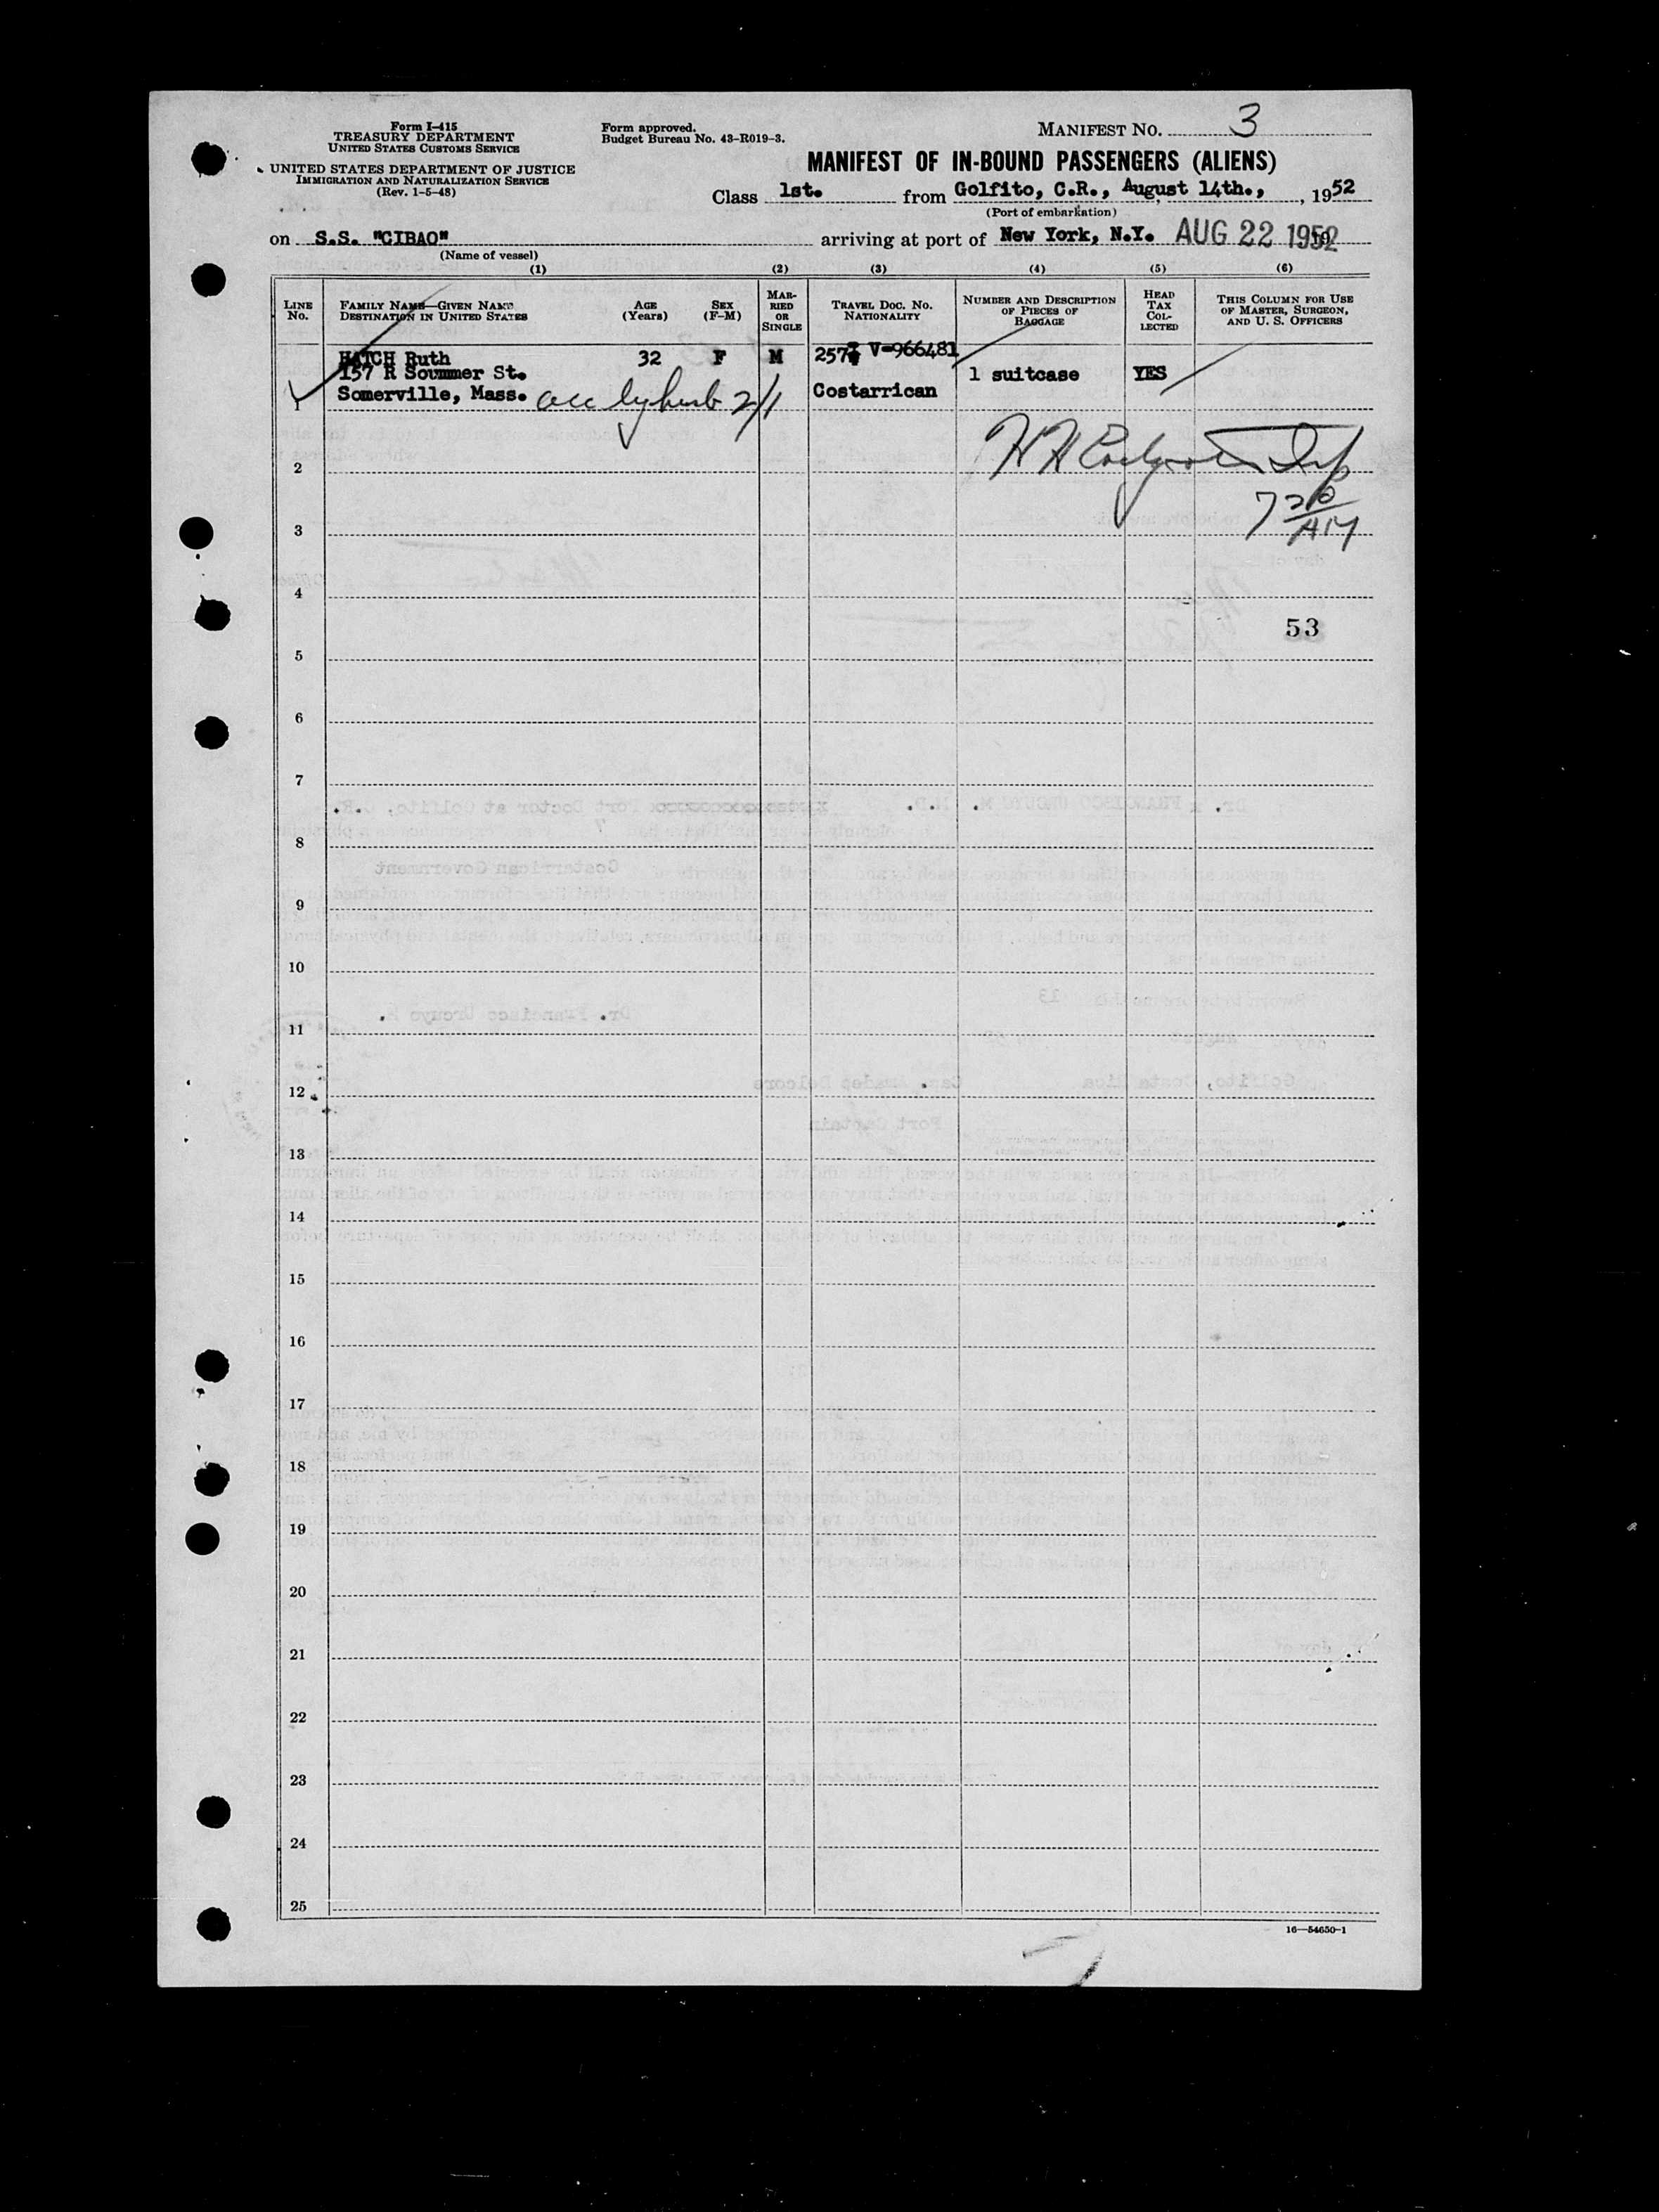 Form I-415
TREASURY DEPARTMENT
UNITED STATES CUSTOMS SERVICE
UNITED STATES DEPARTMENT OF JUSTICE
IMMIGRATION AND NATURALIZATION SERVICE
(Rev. 1-5-48)
Form approved.
Budget Bureau No. 43-R019-3.
MANIFEST NO. 3
MANIFEST OF IN-BOUND PASSENGERS (ALIENS)
Class 1st. from Golfito, C.R., August 14th., , 1952
(Port of embarkation)
on S.S. "CIBAO" arriving at port of New York, N.Y. AUG 22 1952
(Name of vessel)
(1) (2) (3) (4) (5) (6)
LINE No.
FAMILY NAME—GIVEN NAME
DESTINATION IN UNITED STATES
AGE (Years)
SEX (F-M)
MARRIED OR SINGLE
TRAVEL DOC. NO.
NATIONALITY
NUMBER AND DESCRIPTION OF PIECES OF BAGGAGE
HEAD TAX COLLECTED
THIS COLUMN FOR USE OF MASTER, SURGEON, AND U. S. OFFICERS
HATCH Ruth 32 F M V-966481
157 R Soummer St. 1 suitcase YES
1 Somerville, Mass. acc by husb 2/1 Costarrican
2
3
7 20 AM
4
53
5
6
7
8
9
10
11
12
13
14
15
16
17
18
19
20
21
22
23
24
25
16—54650-1